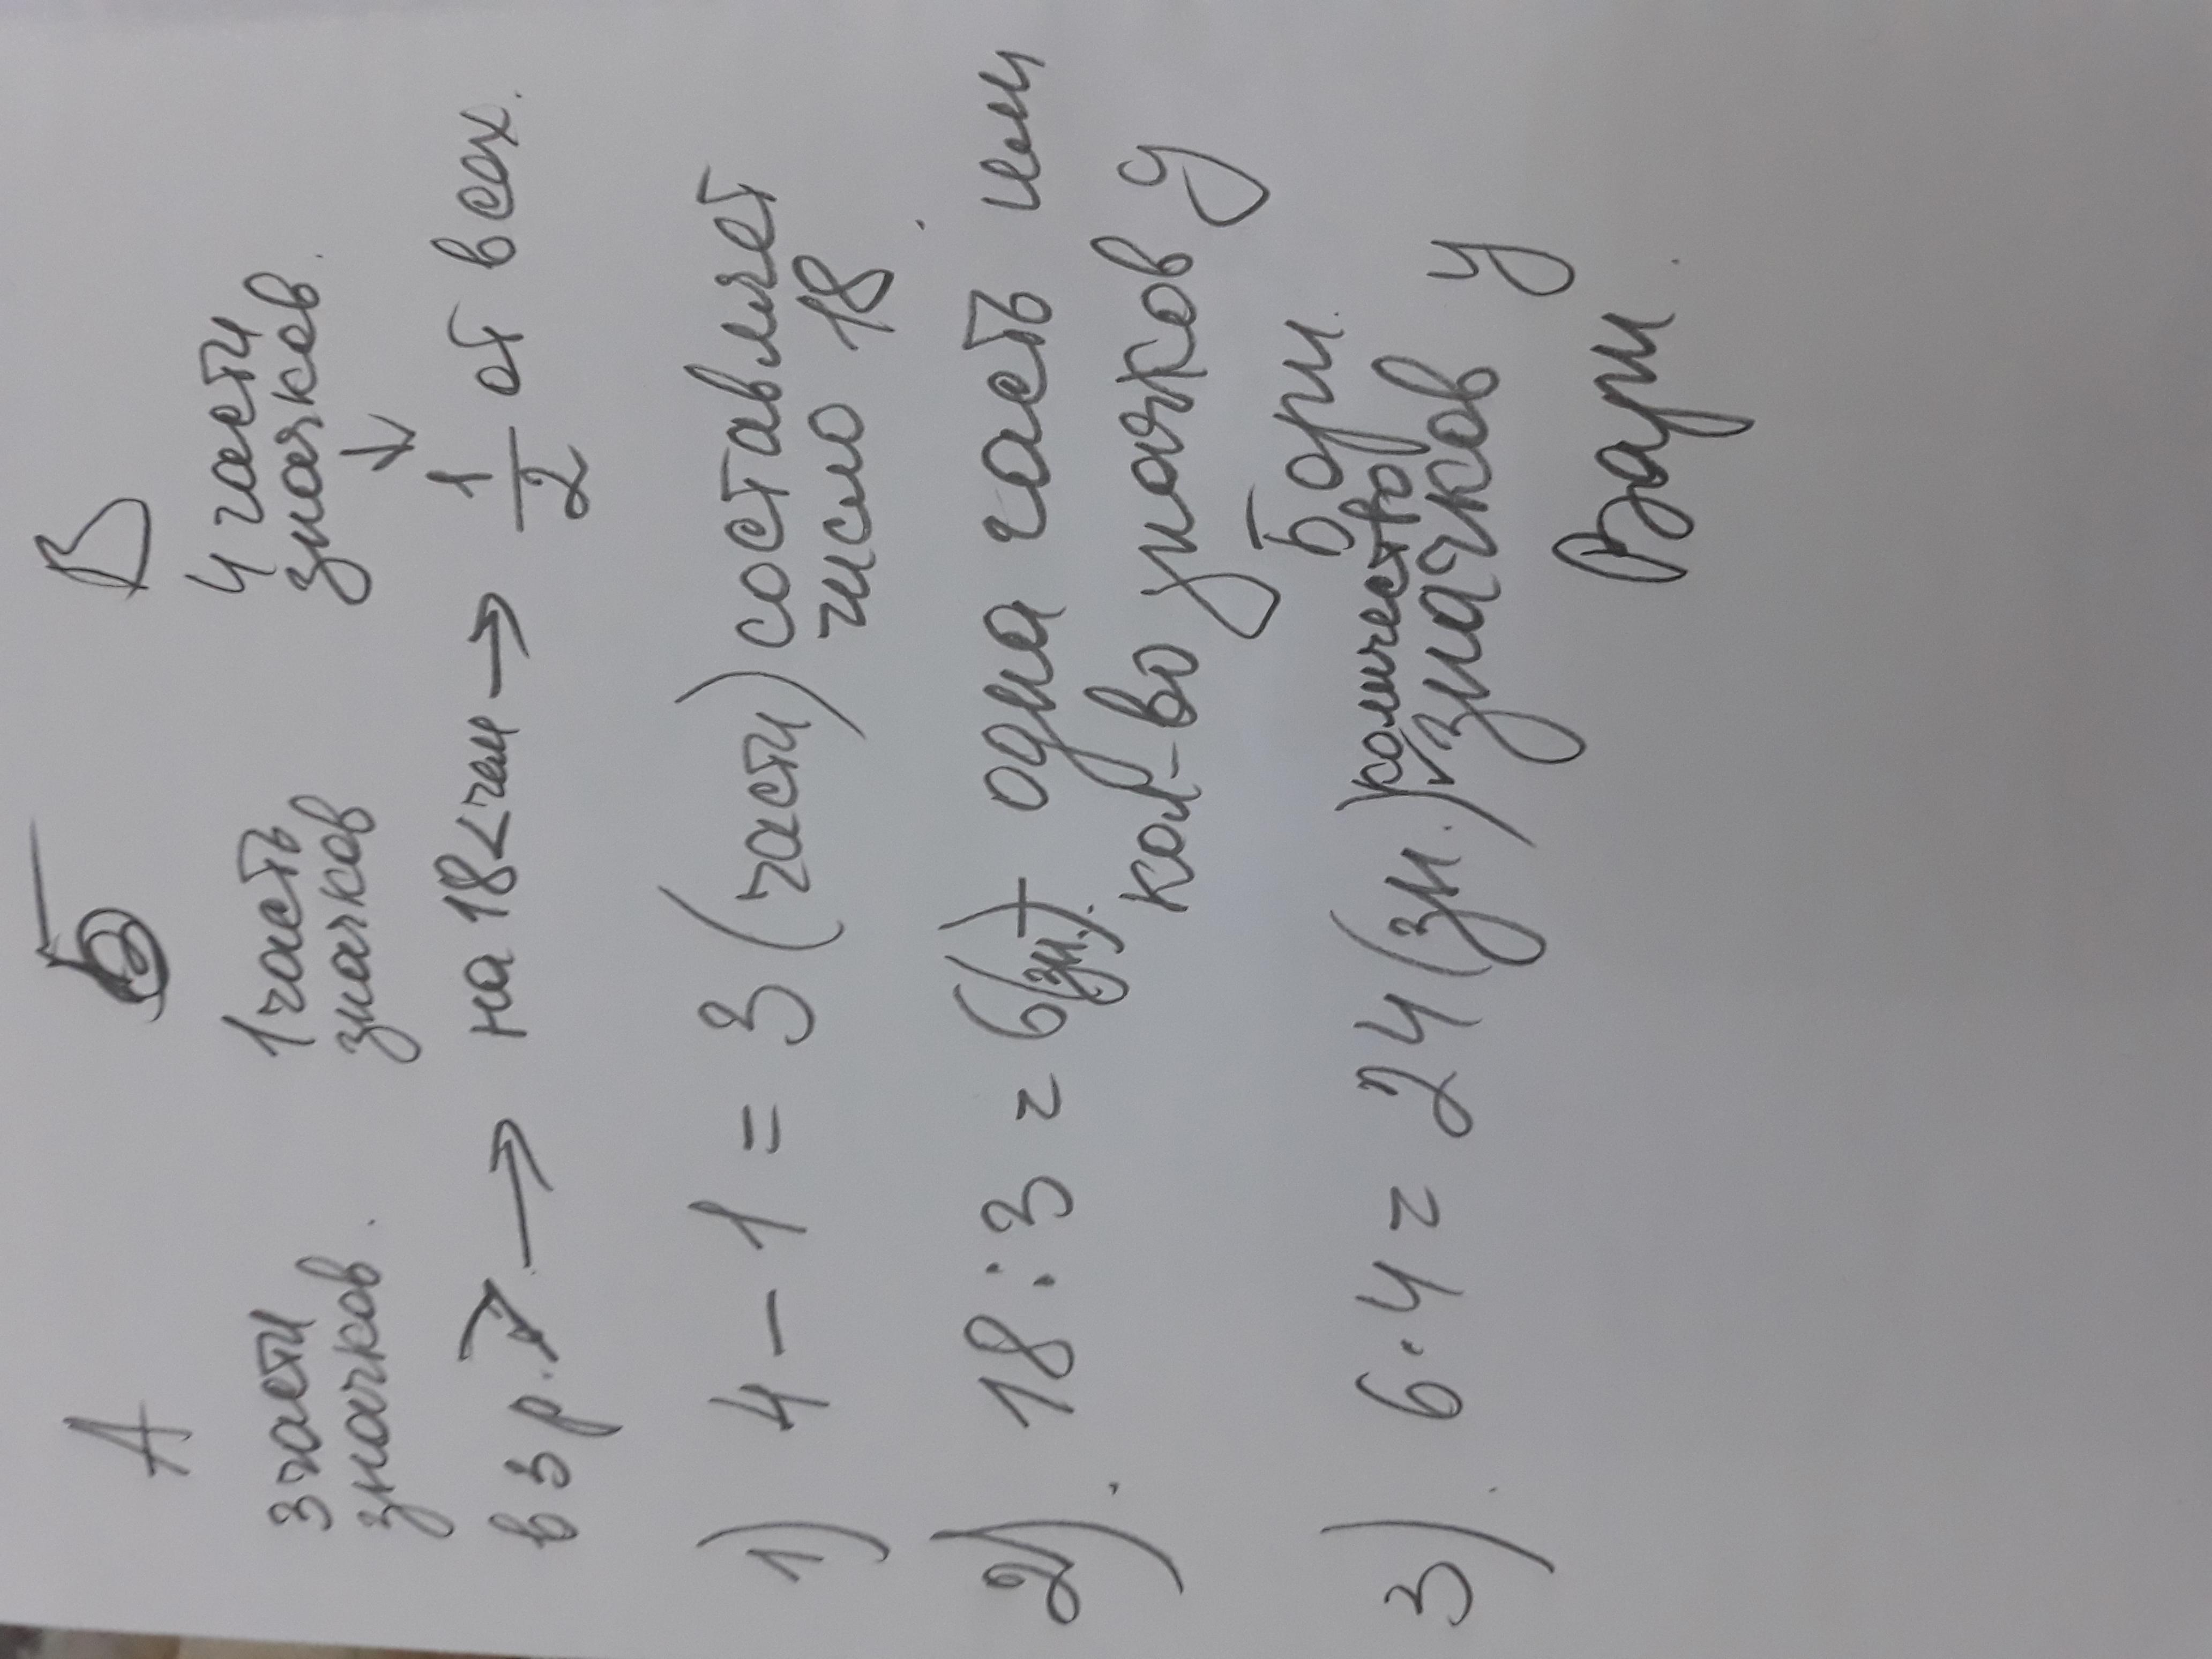 А Б В
3 части 1 часть 4 части
значков. значков значков.
↓
в 3 р. > → на 18 < чем → 1/2 от всех.
1) 4 - 1 = 3 (части) составляет
число 18.
2). 18 : 3 = 6 (зн.) + одна часть или
кол-во значков у
Бори.
3). 6 · 4 = 24 (зн.) количество
значков у
Вари.